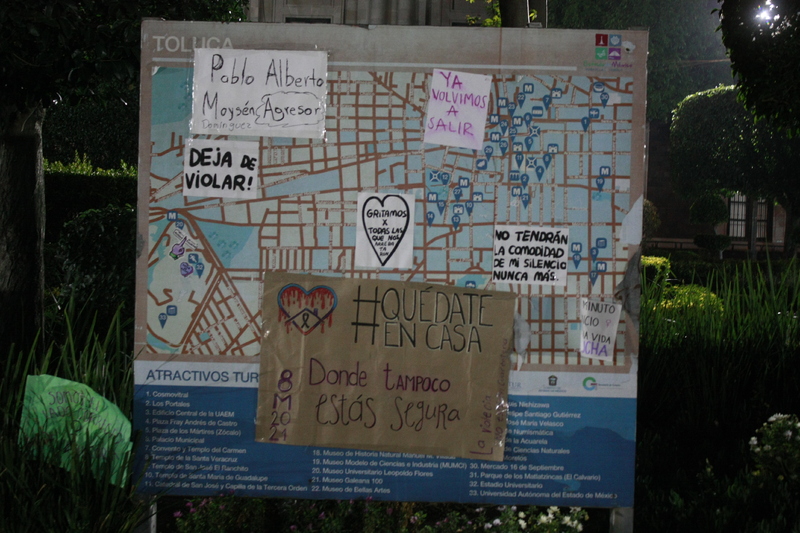 TOLUCA
Pablo Alberto
Moysén Agresor
Dominguez
DEJA DE
VIOLAR!
YA
VOLVIMOS
A
SALIR
GRITAMOS
X
TODAS
LAS QUE NOS
NO TENDRÁN
LA COMODIDAD
DE MI SILENCIO
NUNCA MÁS.
MINUTO
CIO
LA VIDA
CHA
#QUÉDATE
EN CASA
Donde tampoco
estás segura
8
M
20
21
ATRACTIVOS TUR
1. Cosmovitral
2. Los Portales
3. Edificio Central de la UAEM
4. Plaza Fray Andrés de Castro
5. Plaza de los Mártires (Zócalo)
6. Palacio Municipal
7. Convento y Templo del Carmen
8. Templo de la Santa Veracruz
9. Templo de San José El Ranchito
10. Templo de Santa María de Guadalupe
11. Catedral de San José y Capilla de la Tercera Orden
18. Museo de Historia Natural Manuel M.
19. Museo Modelo de Ciencias e Industria (MUMCI)
20. Museo Universitario Leopoldo Flores
21. Museo Galeana 100
22. Museo de Bellas Artes
Nishizawa
elipe Santiago Gutiérrez
José María Velasco
Numismática
de la Acuarela
Ciencias Naturales
30. Mercado 16 de Septiembre
31. Parque de los Matlatzincas (El Calvario)
32. Estadio Universitario
33. Universidad Autónoma del Estado de México